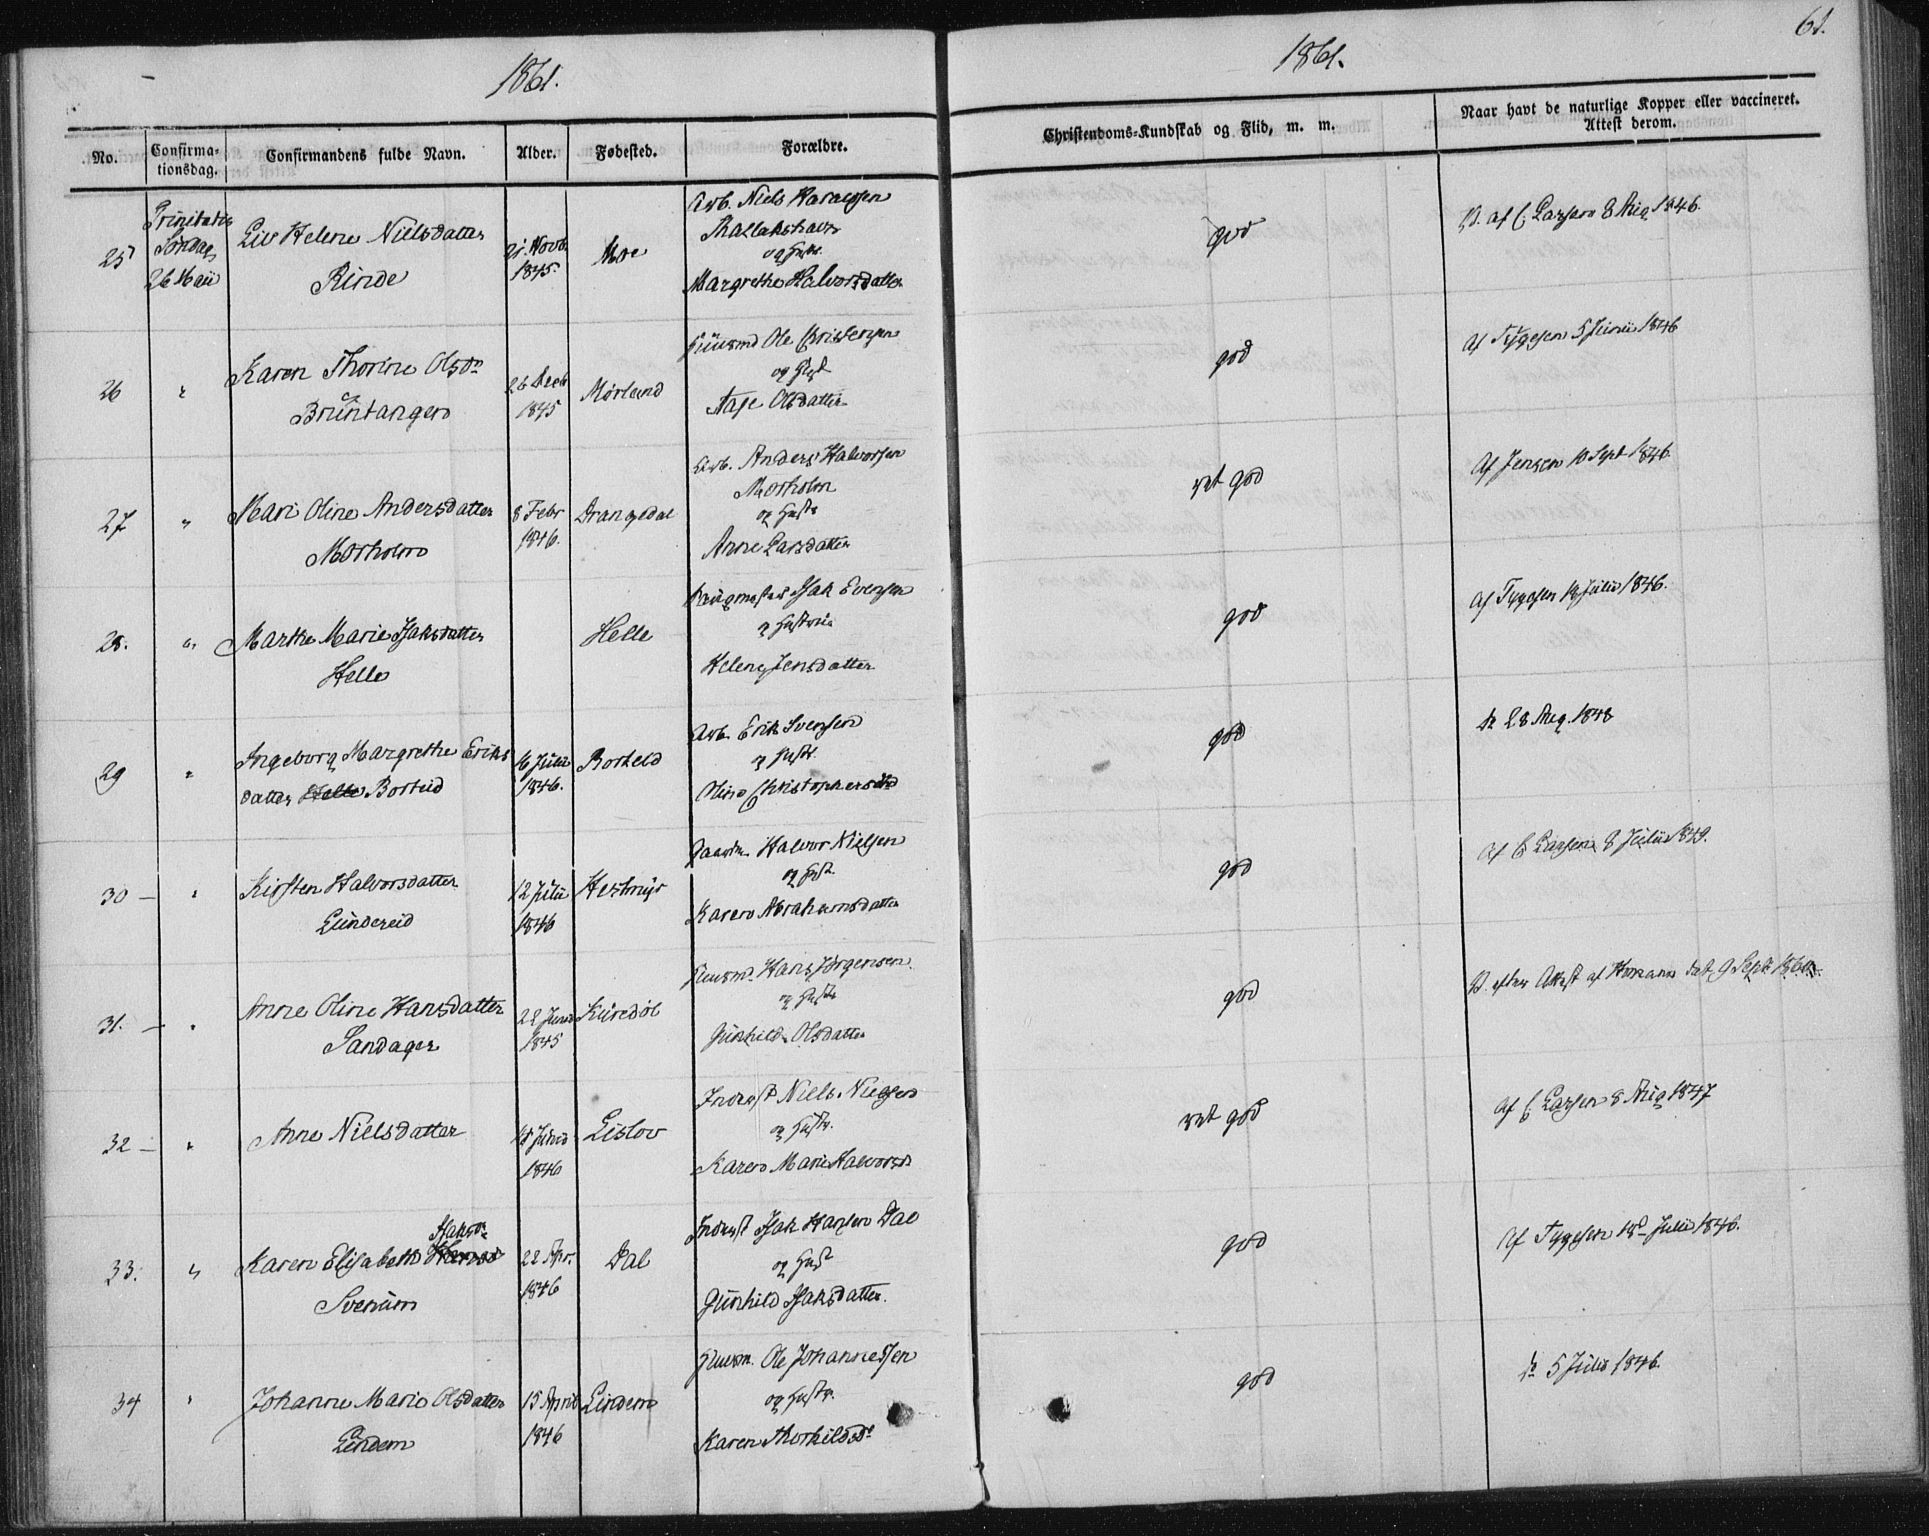 1861.
1861.
61.
No.
Confirma-
tionsdag.
Confirmandens fulde Navn.
Alder.
Fødested.
Forældre.
Christendoms-Kundskab og Flid, m. m.
Naar havt de naturlige Kopper eller vaccineret.
Attest derom.
25
Trinitatis
Søndag
26 Maii
Liv Helene Nielsdatter
Rinde
21. Novbr
1845.
Moe
Arb. Niels
og Hustr.
Margrethe Halvorsdatter
god
V. af C. Larsen 8 Aug 1846.
26
"
Karen Thorine Olsdr
Bruntangen
26 Decb
1845
Mørland
Huusmd Ole Christensen
og Hust
Aase Olsdatter
god
Af Tygesen 5 Junii 1846
27
"
Mari Oline Andersdatter
Morholm
8 Febr
1846.
Drangedal
Arb. Anders Halvorsen
Morholm
og Hustr
Anne Larsdatter
ret god
Af Jensen 10 Sept 1846.
28.
"
Marthe Marie Isaksdatter
Helle
Helle
Isak Evensen
og Hustrue
Helene Jensdatter
god
Af Tygesen 14 Julii 1846.
29
"
Ingeborg Margrethe Eriks
datter Helle Borteid
16 Julii
1846.
Borteid
Arb. Erik Svensen
og Hustr.
Oline Christophersdtr
god
dr 28 Aug. 1848
30 —
"
Kirsten Halvorsdatter
Lundereid
12 Julii
1846
Hestmyr
Gaardm. Halvor Nielsen
og Hustr.
Karen Abrahamsdatter
god
Af C Larsen 8 Julii 1849.
31. —
"
Anne Oline Hansdatter
Sandager
22 Junii
1845
Kuredøl
Huusmd. Hans Jørgensen.
og Hustr
Gunhild Olsdatter
god
V. efter Attest af Homann dat 9 Sept 1860.
32 —
"
Anne Nielsdatter
1846
Lislov
Inderst Niels Nielsen
og Hustr.
Karen Marie Halvorsd
ret god
Af C Larsen 8 Aug 1847
33.
"
Isaksdr
Karen Elisabeth Hansd
Svenum
22 Apr.
1846
Dal
Inderst Isak Hansen Dal
og Hust
Gunhild Isaksdatter.
god
Af Tygesen 18d Julii 1846.
34
"
Johanne Marie Olsdatter
Lindem
15 April
1846
Lindem
Huusm. Ole Johannessen
og Hustr.
Karen Thorkildsdr
god
dr 5 Julii 1846.